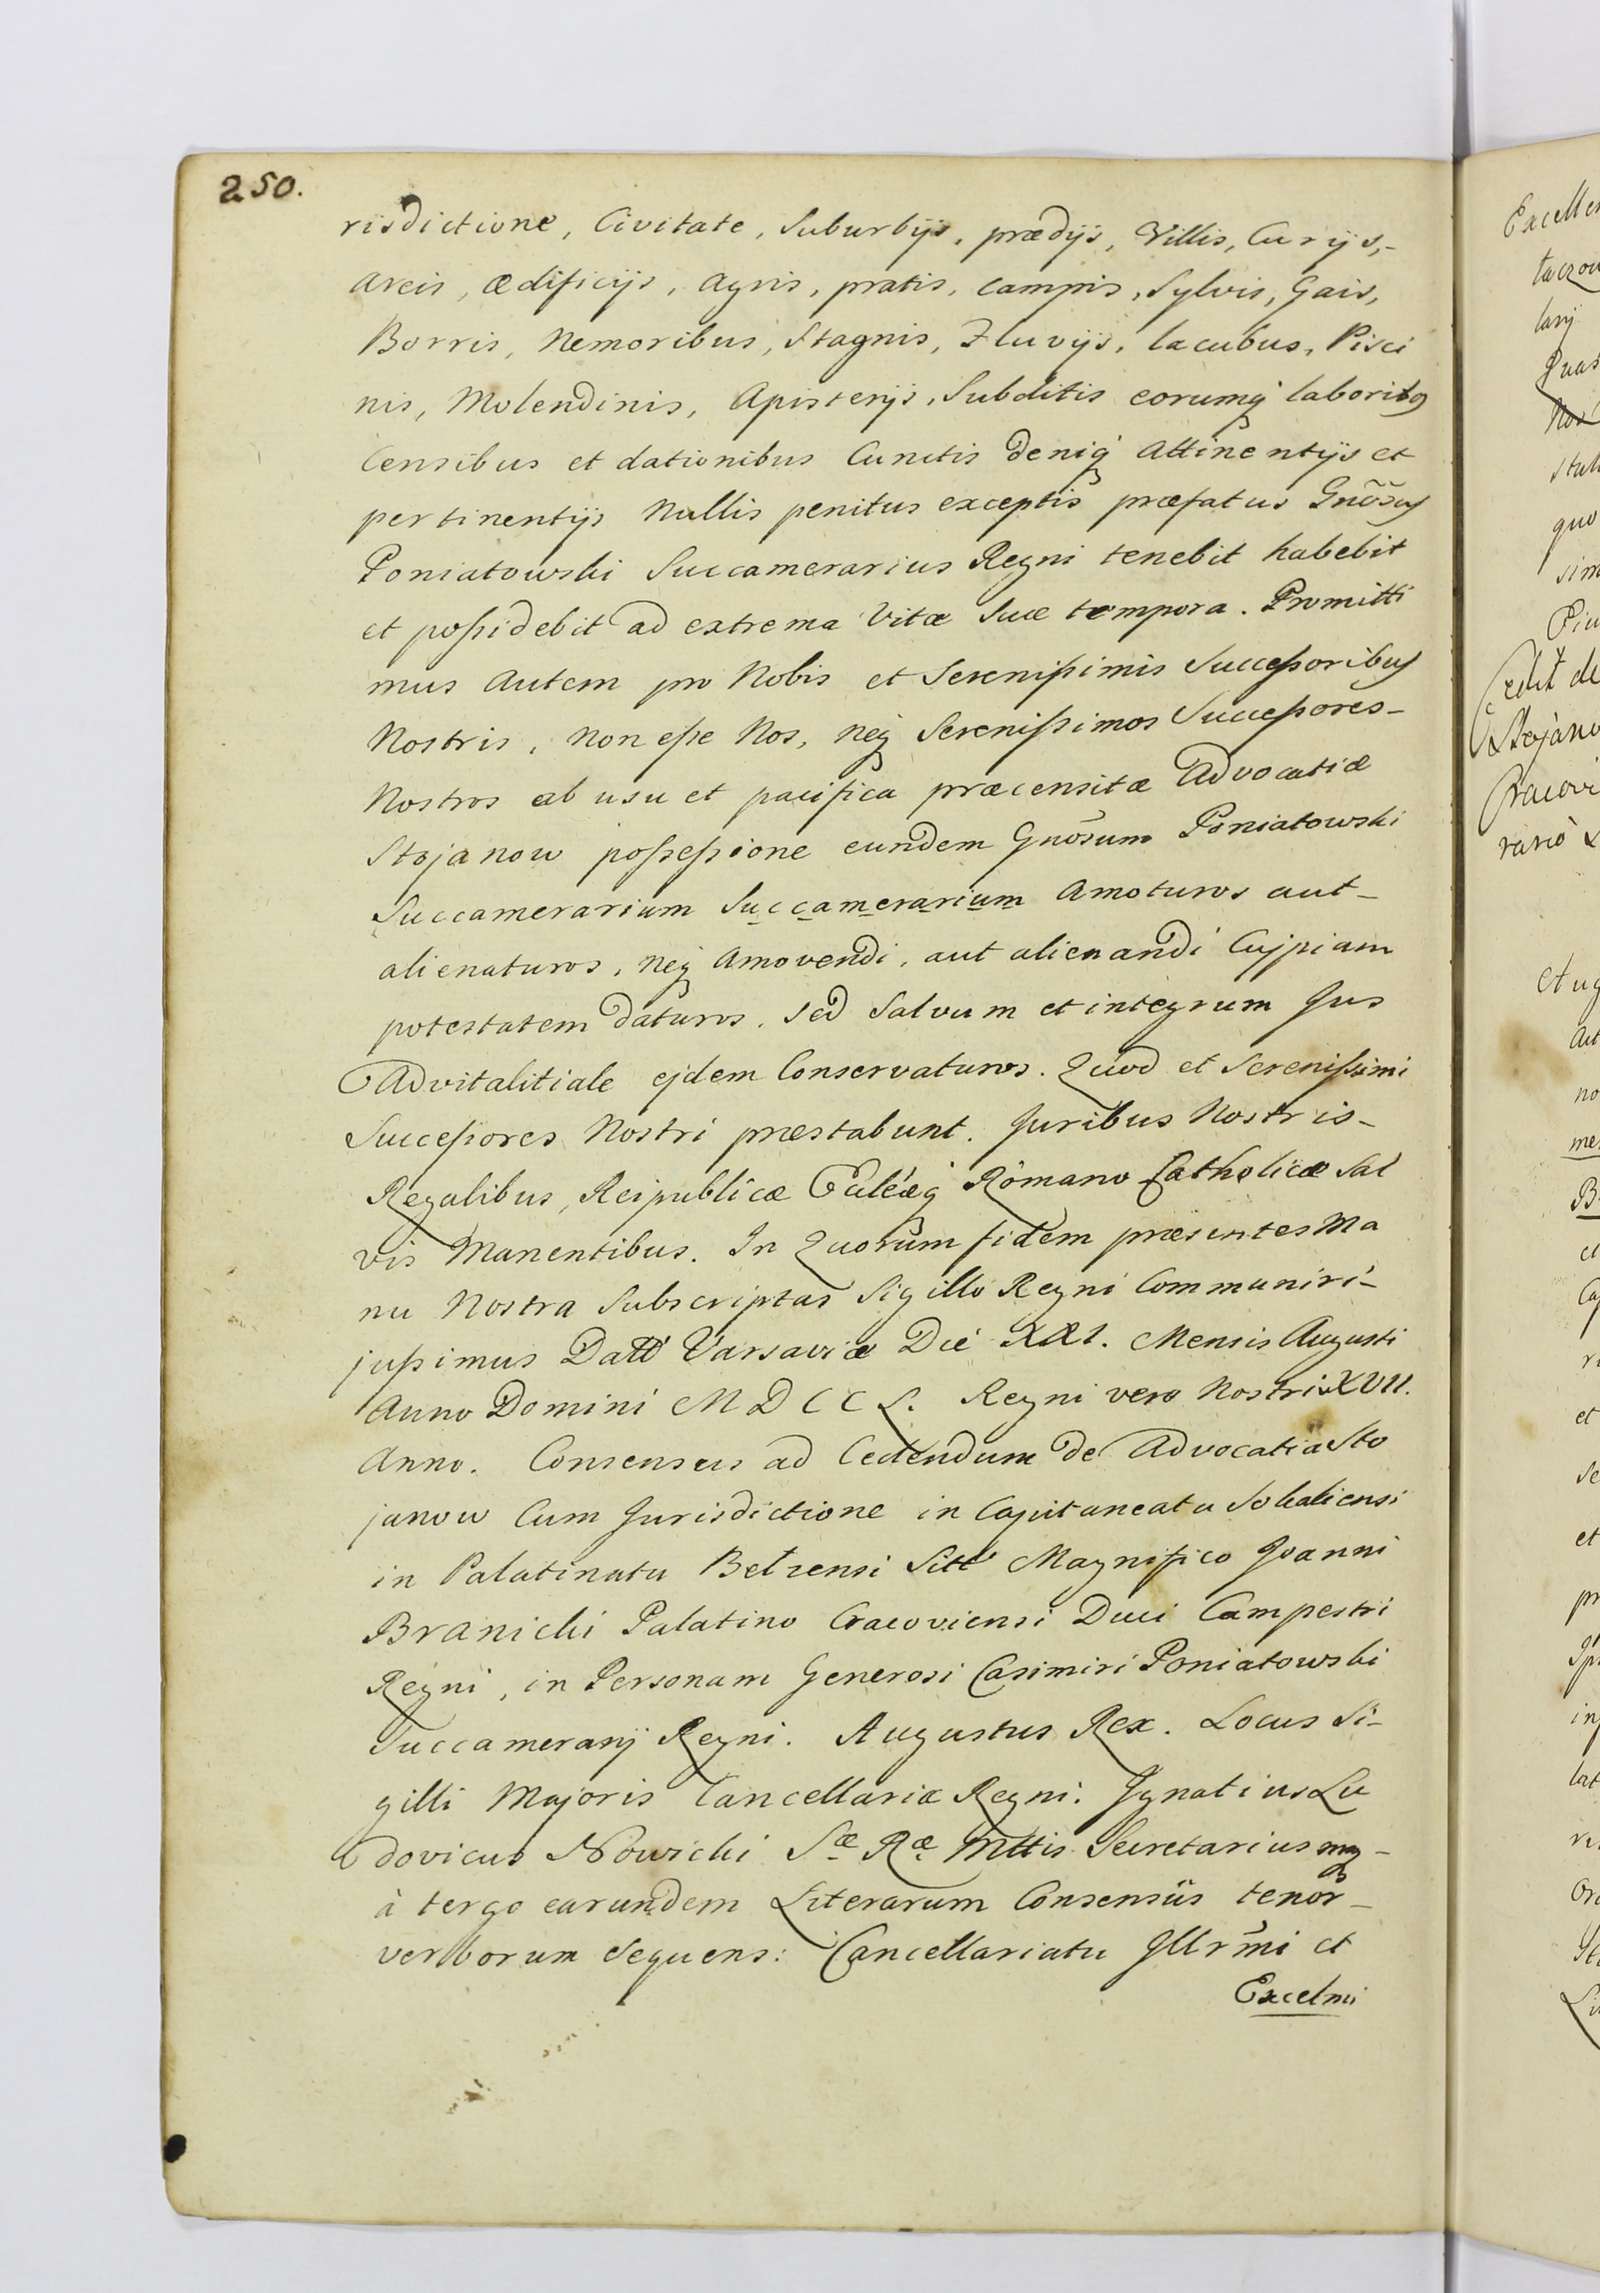 250.
risdictione, Civitate, Suburbijs, prædijs, Villis, Curijs,-
areis, ædificijs, agris, pratis, campis, Sylvis, Gais,
Borris, Nemoribus, Stagnis, Fluvijs, lacubus, Pisci
nis, Molendinis, Apisterijs, Subditis eorumq́ laboribq
Censibus et dationibus Cunctis deniq́ Attinentijs et
pertinentijs Nullis penitus exceptis præfatus Gnõsus
Poniatowski Succamerarius Regni tenebit habebit
et poſsidebit ad extrema Vitæ Suæ tempora. Promitti
mus Autem pro Nobis et Sereniſsimis Succeſsoribus
Nostris, Non eſse Nos, neq́ Sereniſsimos Succeſsores-
Nostros ab usu et pacifica præcensitæ Advocatiæ
Stojanow poſseſsione eundem Gnõsum Poniatowski
Succamerarium Succamerarium Amoturos aut-
alienaturos, neq́ Amovendi, aut alienandi Cujpiam
potestatem daturos, sed Salvum et integrum Jus
Advitalitiale ejdem Conservaturos. Quod et Sereniſsimi
Succeſsores Nostri præstabunt. Juribus Nostris-
Regalibus, Reipublicæ Ecleæq́ Romano Catholicæ Sal
vis Manentibus. In Quorum fidem præsentes Ma
nu Nostra Subscriptas Sigillo Regni Communiri-
juſsimus Datt Varsaviæ Die XXI. Mensis Augusti
Anno Domini MDCCL. Regni vero Nostri XVII.
Anno. Consensus ad Cedendum de Advocatia Sto
janow Cum Jurisdictione in Capitaneatu Sokaliensi
in Palatinatu Belzensi Sitt Magnifico Joanni
Branicki Palatino Cracoviensi Duci Campestri
Regni, in Personam Generosi Casimiri Poniatowski
Succamerarij Regni. Augustus Rex. Locus Si-
gilli Majoris Cancellariæ Regni. Ignatius Lu
dovicus Nowicki Sæ Ræ Mttis Secretarius mq-
à tergo earundem Literarum Consensûs tenor-
verborum Sequens: Cancellariatu Illrm̃i et
Excelmi